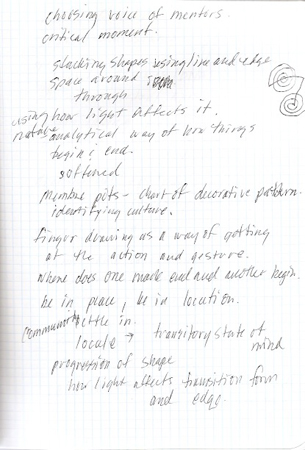 choosing voice of mentors.
critical moment.
stacking shapes using line and edge
space around
through
using how light effects it.
nature analytical way of how things
begin & end.
softened
pots - chart of decorative pattern.
identifying culture.
finger drawing as a way of getting
at the action and gesture.
where does one mark end and another begin.
be in place, be in location.
community settle in.
locale → transitory state of
mind
progression of shape
how light affects transition form
and edge.